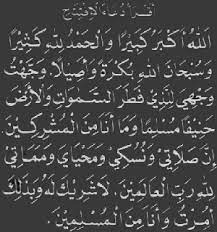 تقرأ دعاء الافتتاح
اَللهُ أَكْبَرُ كَبِيْرًا وَالْحَمْدُ لِلّٰهِ كَثِيْرًا
وَسُبْحَانَ اللهِ بُكْرَةً وَأَصِيْلًا. وَجَّهْتُ
وَجْهِيَ لِلَّذِيْ فَطَرَ السَّمٰوَاتِ وَالْأَرْضَ
حَنِيْفًا مُسْلِمًا وَمَا أَنَا مِنَ الْمُشْرِكِيْنَ
إِنَّ صَلَاتِيْ وَنُسُكِيْ وَمَحْيَايَ وَمَمَاتِيْ
لِلّٰهِ رَبِّ الْعَالَمِيْنَ. لَا شَرِيْكَ لَهُ وَبِذٰلِكَ
أُمِرْتُ وَأَنَا مِنَ الْمُسْلِمِيْنَ.